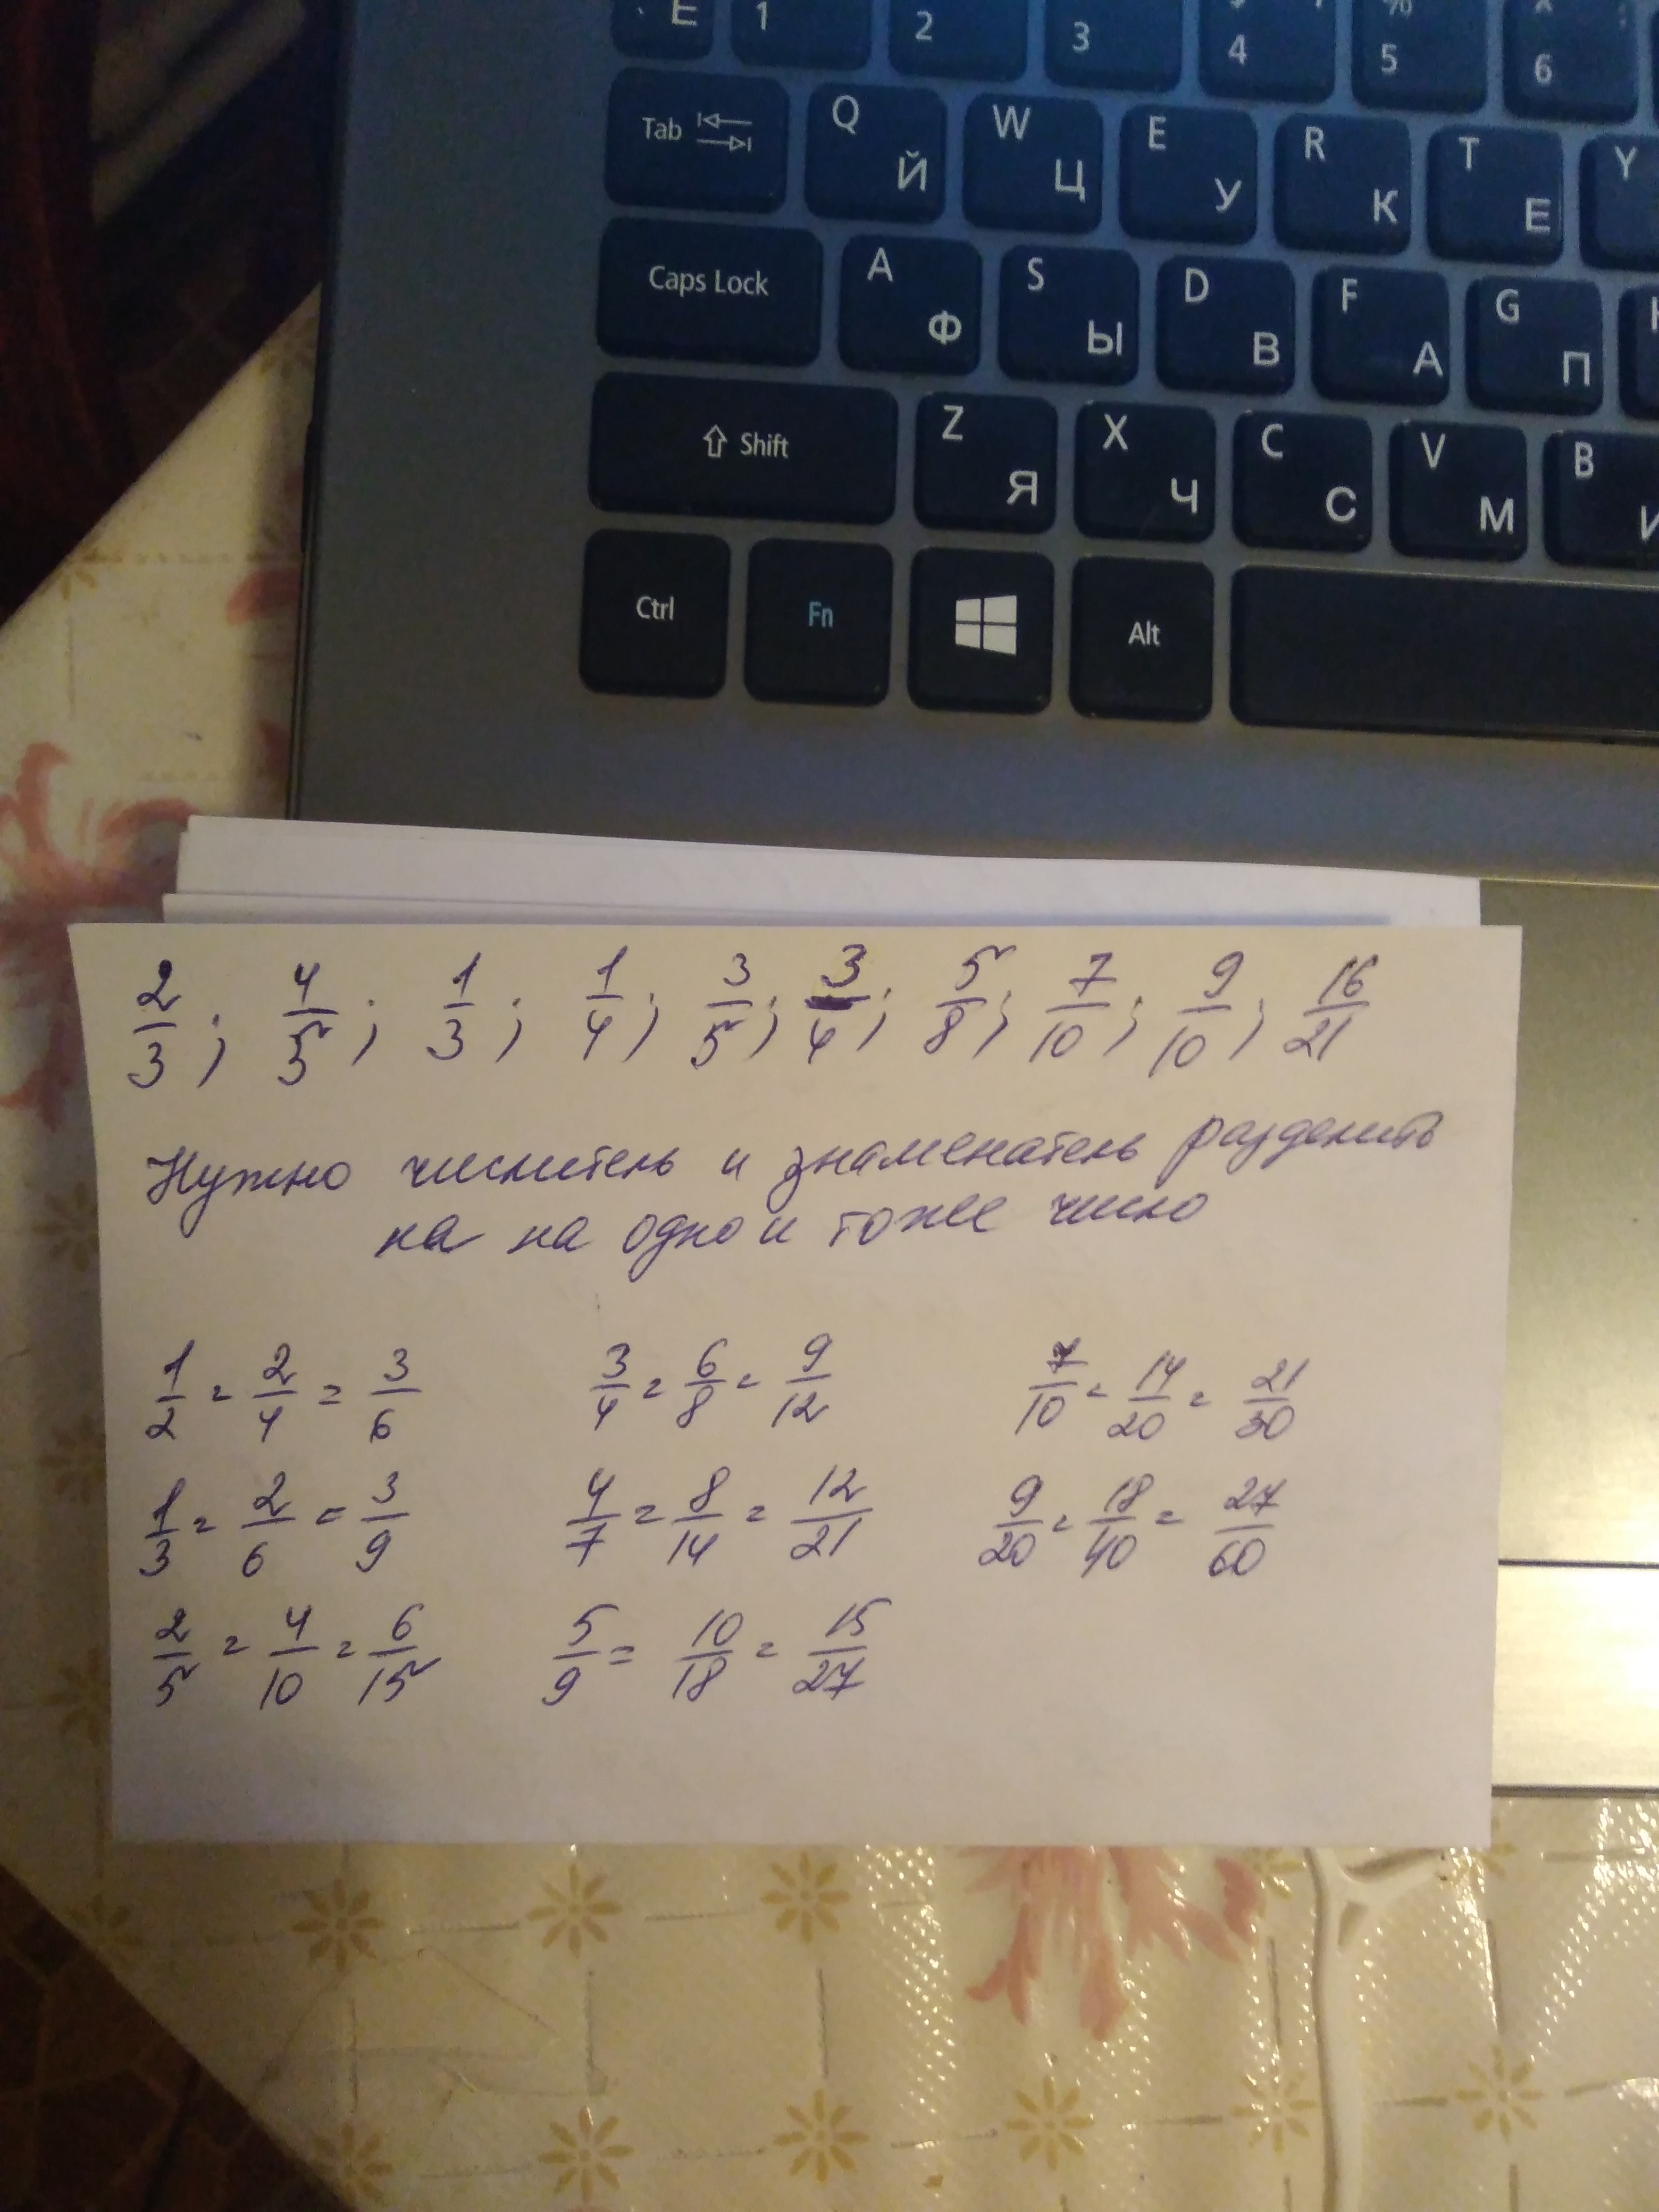 E 1 2 3 4 % 5 6
Tab Q Й W Ц E У R К T Е Y
Caps Lock A Ф S Ы D В F А G П
Shift Z Я X Ч C С V М B И
Ctrl Fn Alt
2/3; 4/5; 1/3; 1/4; 3/5; 3/4; 5/8; 7/10; 9/10; 16/21
Нужно числитель и знаменатель разделить
на на одно и тоже число
1/2 = 2/4 = 3/6 3/4 = 6/8 = 9/12 7/10 = 14/20 = 21/30
1/3 = 2/6 = 3/9 4/7 = 8/14 = 12/21 9/20 = 18/40 = 27/60
2/5 = 4/10 = 6/15 5/9 = 10/18 = 15/27